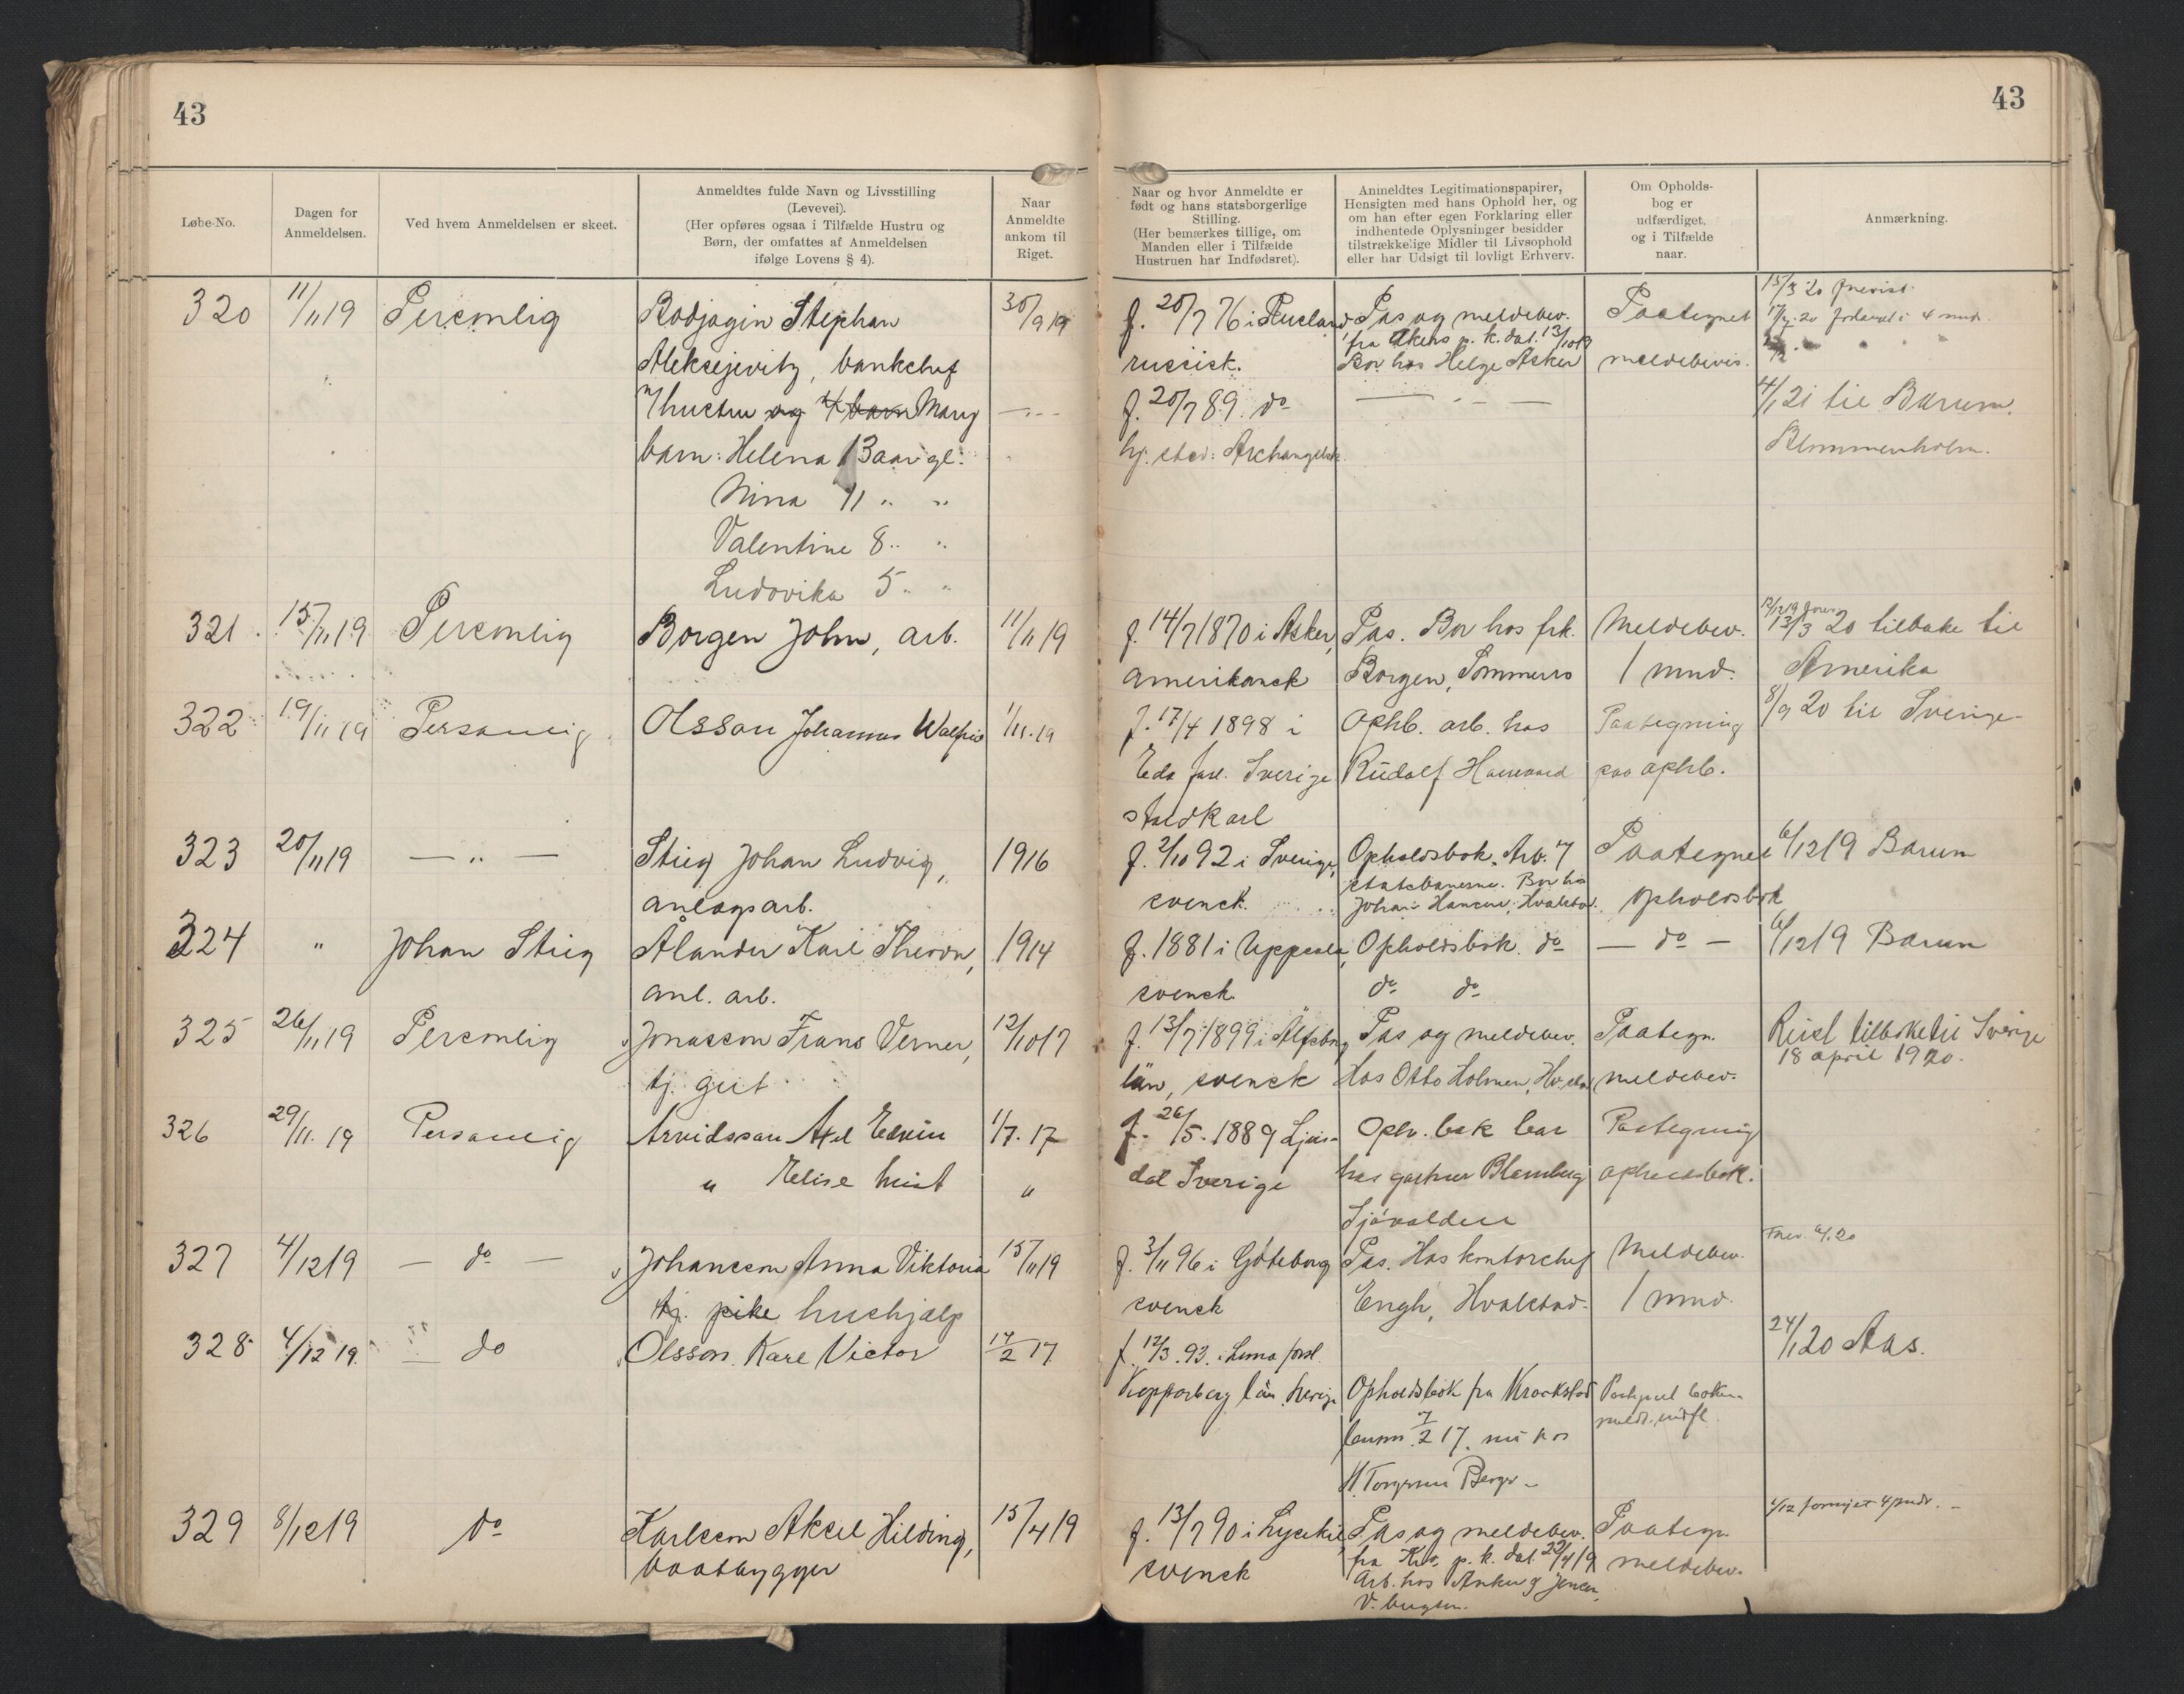 43
43
Løbe-No.
Dagen for
Anmeldelsen.
Ved hvem Anmeldelsen er skeet.
Anmeldtes fulde Navn og Livsstilling
(Levevei).
(Her opføres ogsaa i Tilfælde Hustru og
Børn, der omfattes af Anmeldelsen
ifølge Lovens § 4).
Naar
Anmeldte
ankom til
Riget.
Naar og hvor Anmeldte er
født og hans statsborgerlige
Stilling.
(Her bemærkes tillige, om
Manden eller i Tilfælde
Hustruen har Indfødsret).
Anmeldtes Legitimationspapirer,
Hensigten med hans Ophold her, og
om han efter egen Forklaring eller
indhentede Oplysninger besidder
tilstrækkelige Midler til Livsophold
eller har Udsigt til lovligt Erhverv.
Om Opholds-
bog er
udfærdiget,
og i Tilfælde
naar.
Anmærkning.
320 11/11 19 Personlig Rodjagin Stephan 30/9 19 f. 20/7 76 i Rusland Pas og meldebev. Paategnet 15/3 20
fra Akers p. k. dat. 13/10 19 20 4 mnd.
Aleksejevitz, bankchef russisk. Bor hos Helge Asker meldebevis.
m/ hustru og 4 barn Mary — " — f. 20/7 89. do — " — 4/1 21 til Bærum.
barn: Helena 13 aar gl. hj. sted: Archangelsk Blommenholm.
Nina 11 " "
Valentine 8 " "
Ludovika 5 " "
321. 15/11 19 Personlig Borgen John, arb. 11/11 19 f. 14/7 1870 i Asker, Pas. Bor hos frk. Meldebev. 13/3 20 tilbake til
amerikansk Borgen, Sommerro 1 mnd. Amerika
322 19/11 19 Personlig Olsson Johannes Walfrid 1/11.19 f. 17/4 1898 i Ophb. arb. hos Paategning 8/9 20 til Sverige
Eda Sverige Rudolf paa ophb.
stadkarl
323 20/11 19 — " — Stieg Johan Ludvig, 1916 f. 2/10 92 i Sverige, Opholdsbok. Arb. v/ Paategnet 6/12 19 Bærum
statsbanerne. Bor hos
anlægsarb. svensk. Johan Hansen, Hvalstad. opholdsbok
324 " Johan Stieg Ålander Karl Theodor, 1914 f. 1881 i Uppsala, Opholdsbok. do — do — 6/12 19 Bærum
anl. arb. svensk. do do
325 26/11 19 Personlig Jonasson Frans Verner, 12/10 17 f. 13/7 1899 i Älfsborg Pas og meldebev. Paategn. Reist tilbake til Sverige
18 april 1920.
tj. gut län, svensk Hos Otto Holmen, Hv.stad meldebev.
326 29/11.19 Personlig Arvidsson Axel Edvin 1/7.17 f. 26/5.1889 Ljus- Oph. bok bor Paategning
" Elise hust " dal Sverige hos gartner Blomberg opholdsbok.
Sjøvolden
327 4/12 19 — do — Johansson Anna Viktoria 15/11 19 f. 3/11 96 i Göteborg Pas. Hos kontorchef Meldebev.
tj. pike hushjælp svensk Engh, Hvalstad. 1 mnd.
328 4/12 19. — do Olsson. Karl Victor 17/2 17 f. 12/3.93. i Lima 24/1 20 Aas.
Kopparberg län Sverige Opholdsbok fra Kraakstad
7/2 17. nu hos
H. Torgersen Berger
329 8/12 19 do Karlsson Aksel Hilding, 15/4 19 f. 13/7 90 i Lysekil, Pas og meldebev. Paategn.
fra Kra. p. k. dat. 22/4 19
baatbygger svensk Arb. hos Anker & Jensen, meldebev.
V.